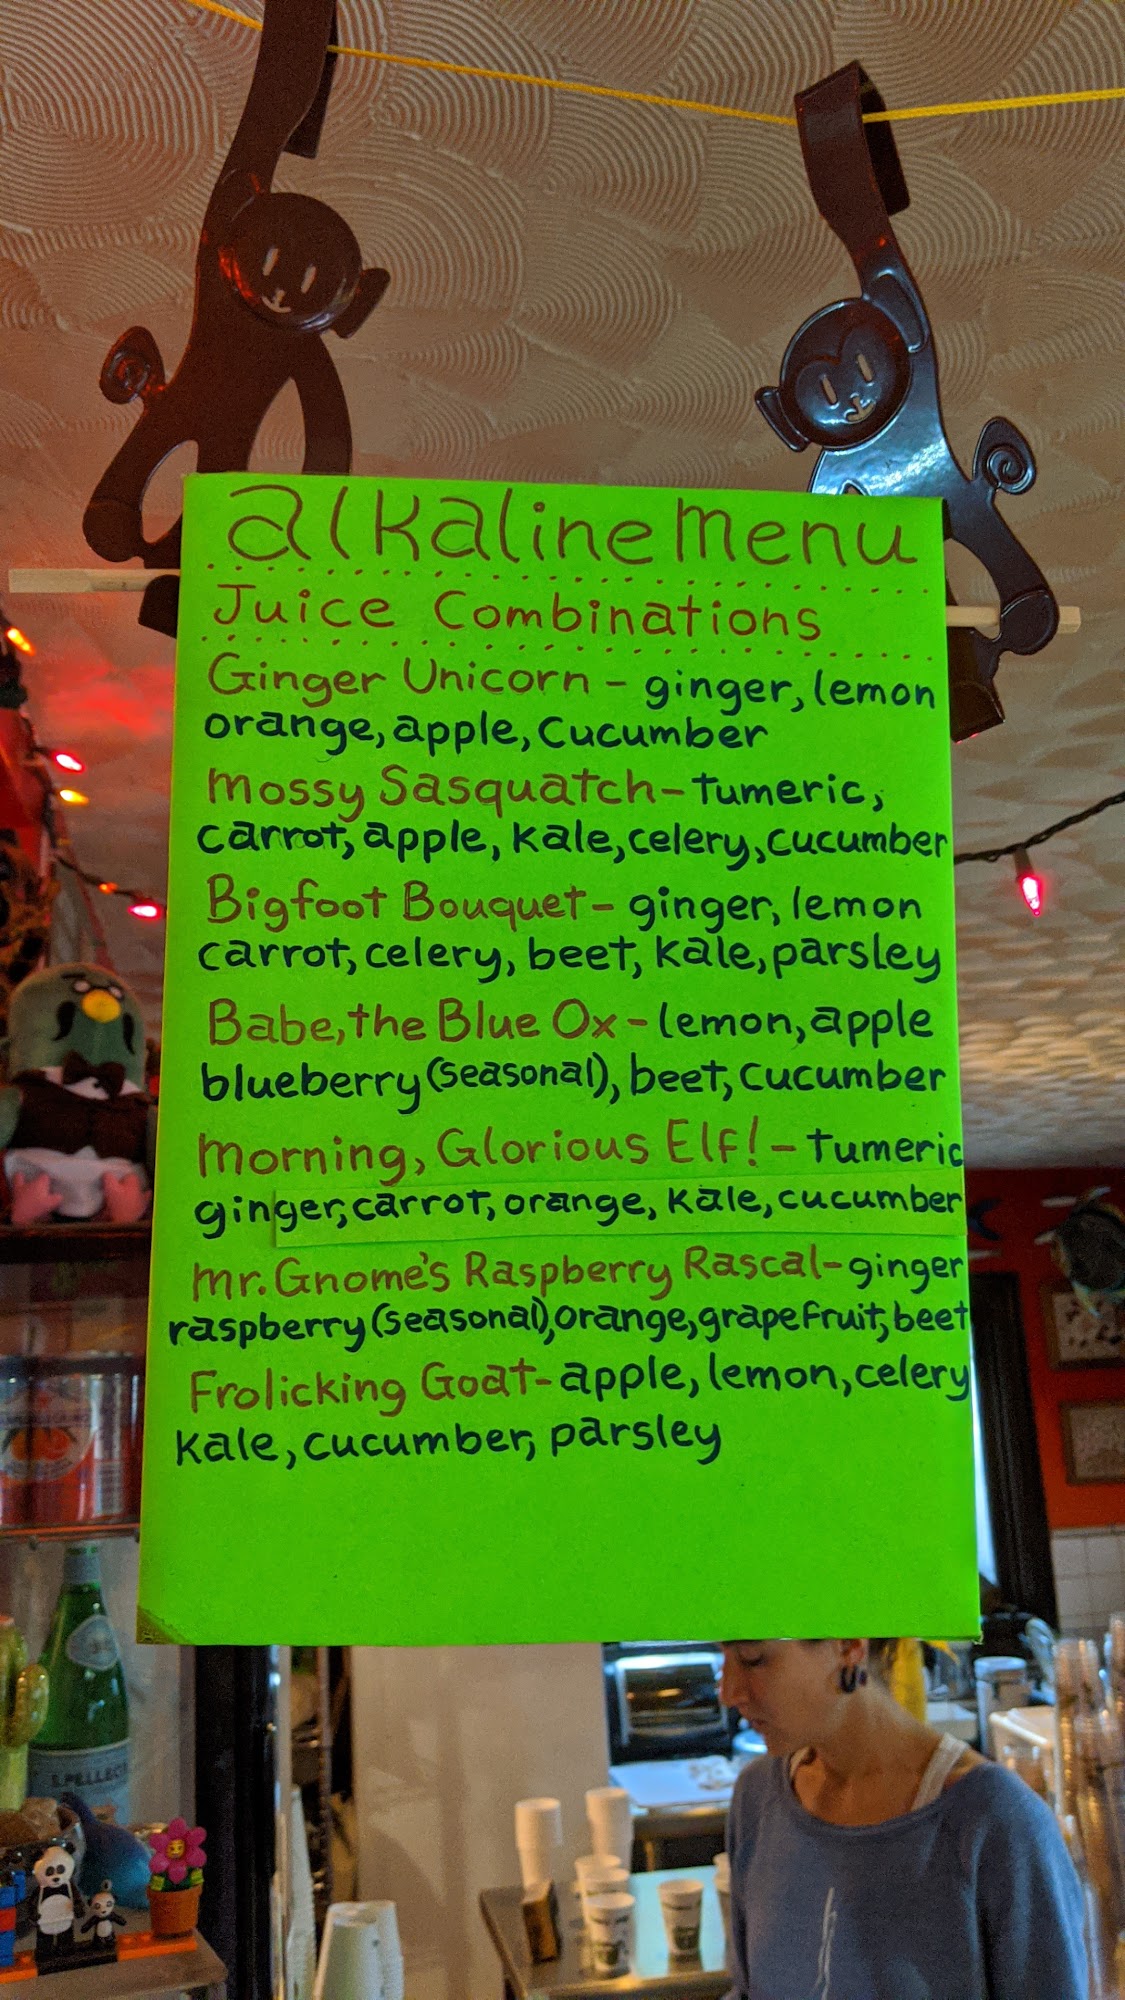 alkaline menu
Juice Combinations
Ginger Unicorn - ginger, lemon
orange, apple, Cucumber
Mossy Sasquatch - Tumeric,
carrot, apple, kale, celery, cucumber
Bigfoot Bouquet - ginger, lemon
carrot, celery, beet, kale, parsley
Babe, the Blue Ox - lemon, apple
blueberry (seasonal), beet, cucumber
Morning, Glorious Elf! - Tumeric
ginger, carrot, orange, kale, cucumber
Mr. Gnome's Raspberry Rascal - ginger
raspberry (seasonal), orange, grapefruit, beet
Frolicking Goat - apple, lemon, celery
kale, cucumber, parsley
S.PELLEG